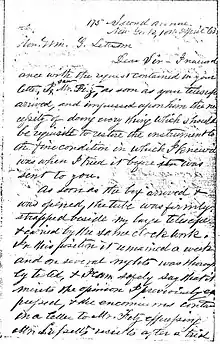 175 Second Avenue
New York, 10th April 65
Hon. Wm. G. Lettsom
Dear Sir - In accord
ance with the request contained in your
letter, I saw Mr. Fitz, as soon as your telescope
arrived, and impressed upon him the ne
cessity of doing every thing which should
be requisite to restore the instrument to
the fine condition in which I knew it
was when I tried it before it was
sent to you.
As soon as the box arrived &
was opened, the tube was firmly
strapped beside my large telescope
& carried by the same clock work.
In this position it remained a week
and on several nights was thorough
ly tested, & I can safely say that it
merits the opinion I previously ex
pressed, & the encomiums contained
in a letter to Mr. Fitz expressing
Mr. results after a trial